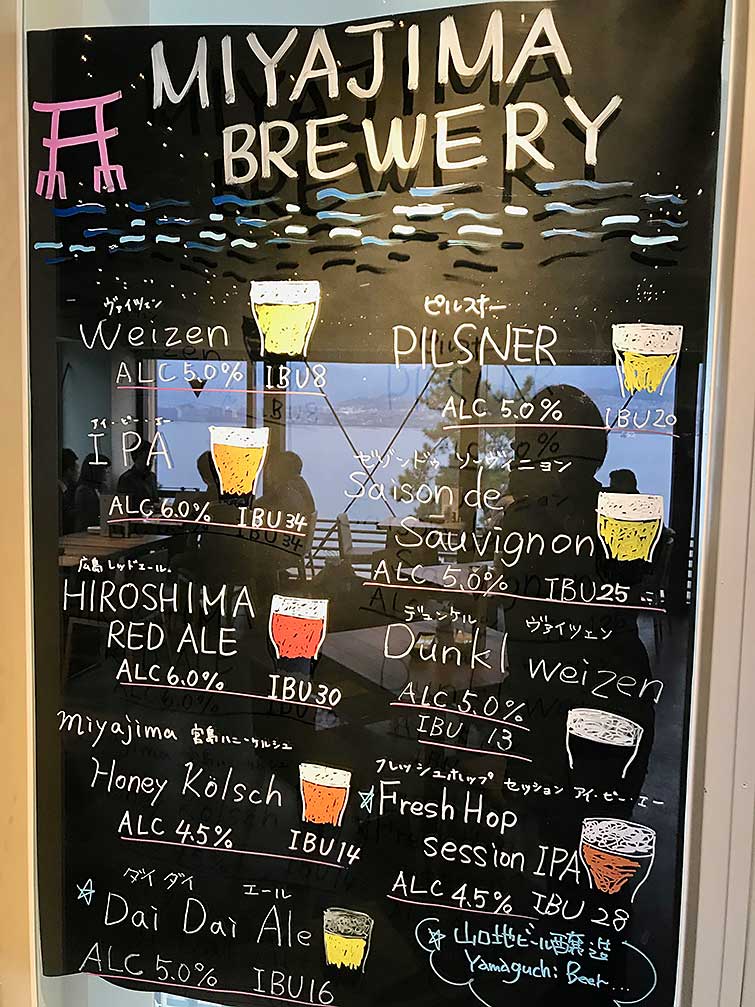 MIYAJIMA
BREWERY
ヴァイツェン
Weizen
ALC 5.0% IBU 8
アイ・ピー・エー
IPA
ALC 6.0% IBU 34
広島レッドエール。
HIROSHIMA
RED ALE
ALC 6.0% IBU 30
miyajima 宮島ハニーケルシュ
Honey Kölsch
ALC 4.5% IBU 14
ダイダイ エール
☆ Dai Dai Ale
ALC 5.0% IBU 16
ピルスナー
PILSNER
ALC 5.0% IBU 20
セゾンドゥ ソーヴィニョン
Saison de
Sauvignon
ALC 5.0% IBU 25
デュンケル ヴァイツェン
Dunkl weizen
ALC 5.0%
IBU 13
フレッシュホップ セッション アイ・ピー・エー
☆ Fresh Hop
session IPA
ALC 4.5% IBU 28
☆ 山口地ビール醸造
Yamaguchi Beer...